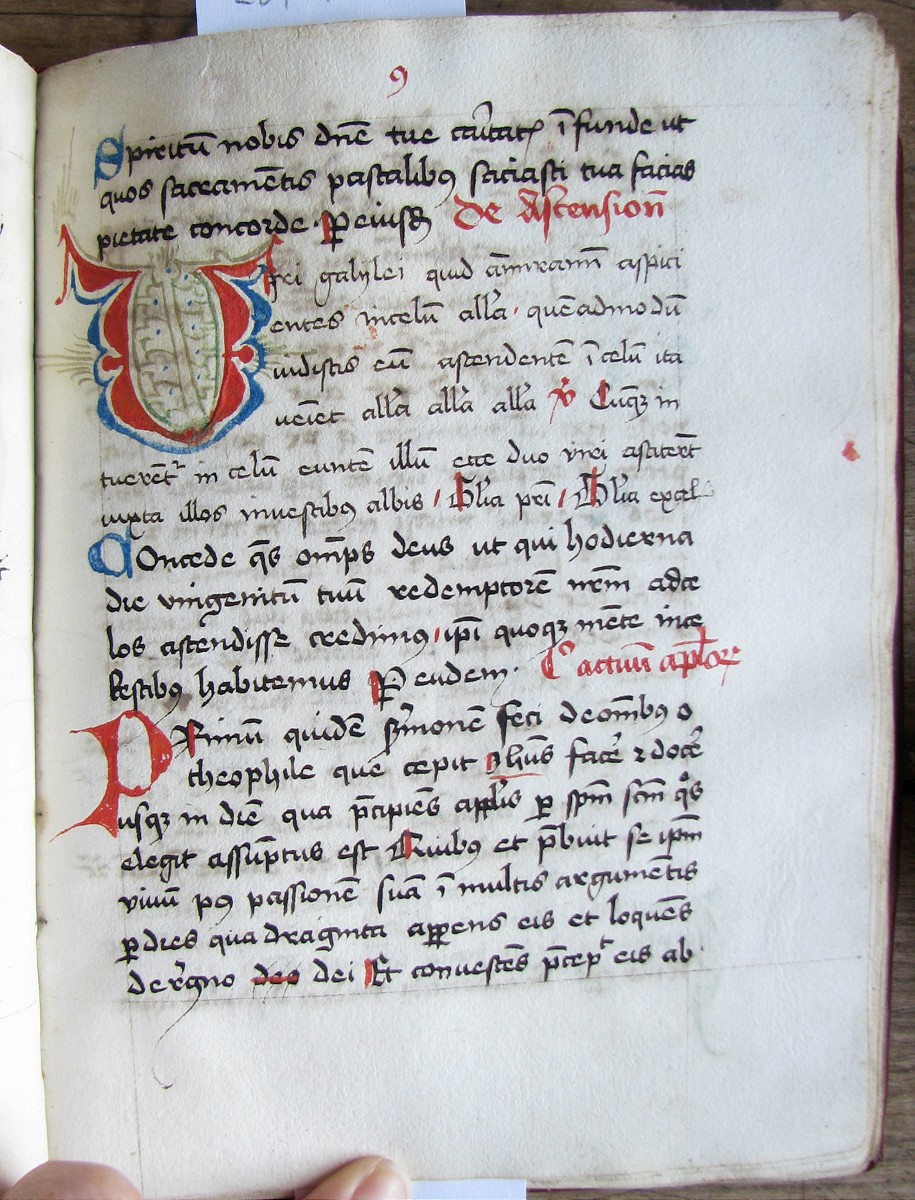 9
Spiritū nobis dn̄e tue caritatꝭ īfunde ut
quos sacramētis pascalibꝰ saciasti tua facias
pietate concorde. P eiusd̄ De Ascension̄
Viri galylei quid āmiramī aspici
entes incelū all'a, quēadmodū
uidistis eū ascendentē ī celū ita
ueīet all'a all'a all'a ℣ Cūqꝫ in
tuerēt᷑ in celū euntē illū ecce duo viri astitert̄
iuxta illos investibꝰ albis, Gl'ia pr̄i, Gl'ia excel
COncede q̄s om̄ps deus ut qui hodierna
die vnigenitū tuū redemptorē nr̄m adce
los ascendisse credimꝰ, ip̄i quoqꝫ mēte ince
lestibꝰ habitemus P eundem. Lc̄o actuū ap̄lorꝝ
PRimū quidē s'monē feci deom̄ibꝰ o
theophile que cepit yhūs facē ⁊ docē
usqꝫ in diē qua p̄cipiēs ap̄lis ꝑ sp̄m sc̄m qͦs
elegit assūptus est Quibꝰ et p̄buit se ip̄m
vivū pꝰ passionē suā ī multis argumētis
ꝑ dies quadraginta apparens eis et loquēs
de regno deo dei Et convescēs p̄cep͛t eis ab